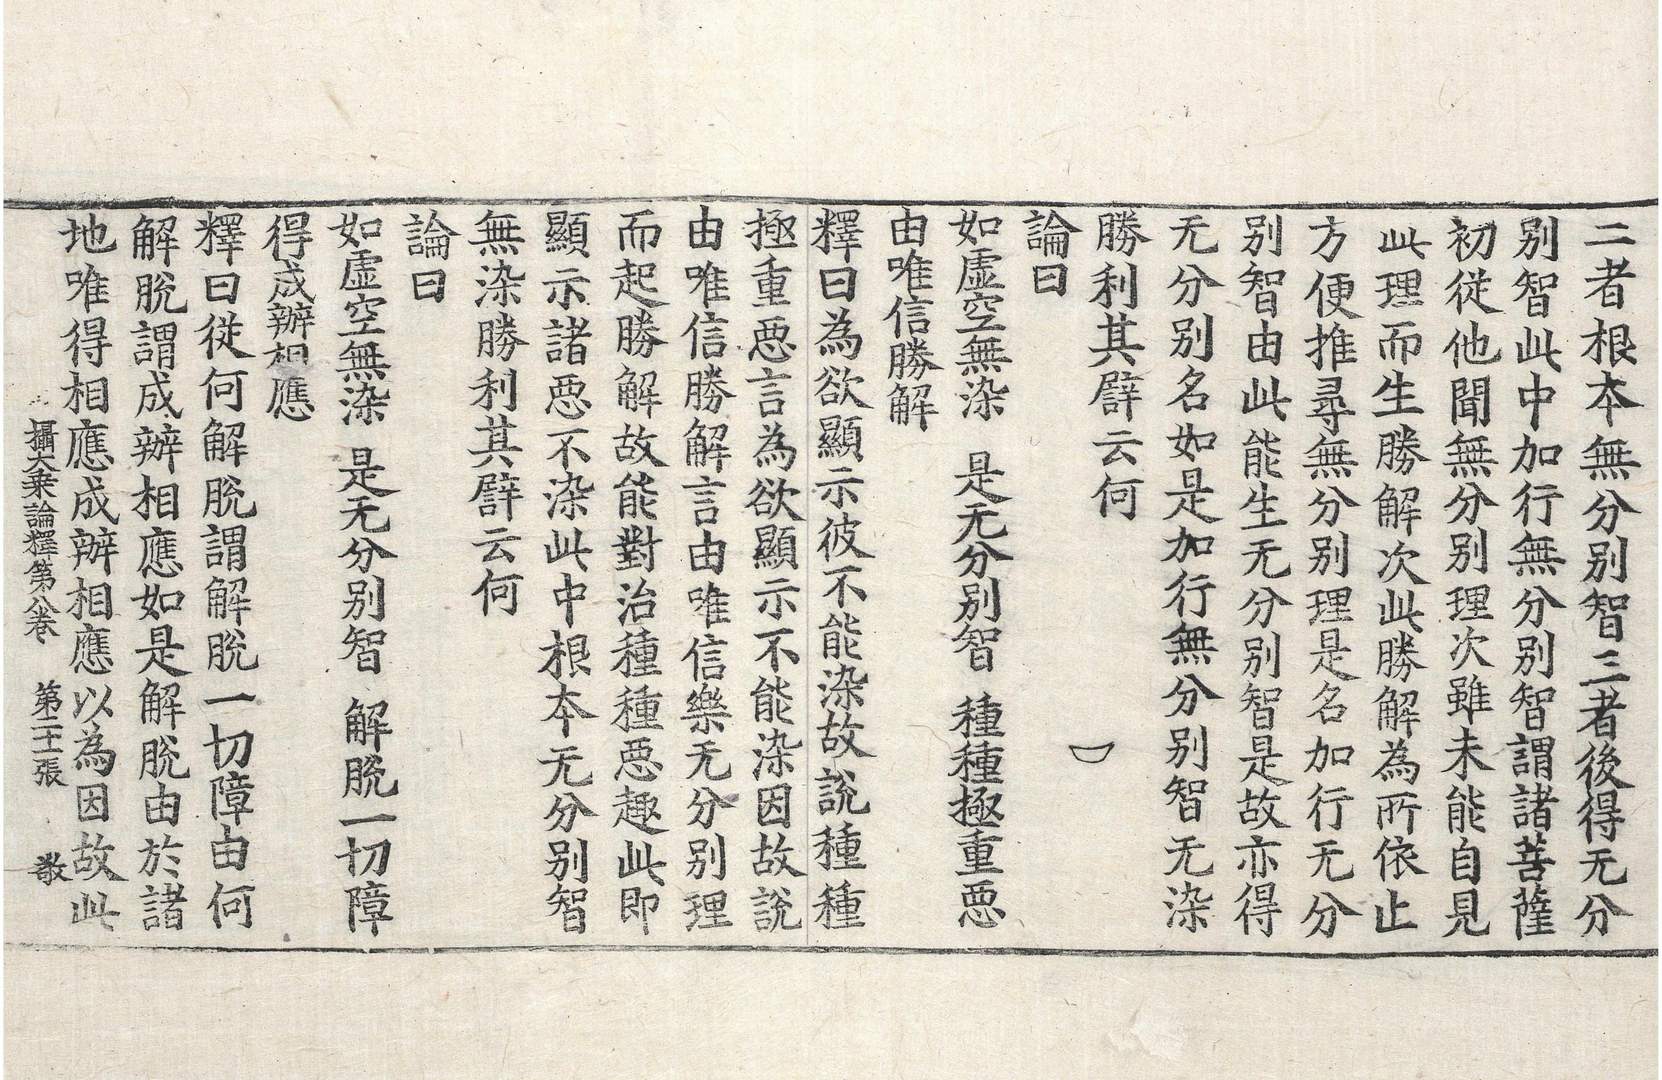 二者根本無分别智三者後得无分
别智此中加行無分别智謂諸菩薩
初從他聞無分别理次雖未能自見
此理而生勝解次此勝解為所依止
方便推尋無分别理是名加行无分
别智由此能生无分别智是故亦得
无分别名如是加行無分别智无染
勝利其譬云何
論曰
如虛空無染 是无分别智 種種極重惡
由唯信勝解
釋曰為欲顯示彼不能染故說種種
極重惡言為欲顯示不能染因故說
由唯信勝解言由唯信樂无分别理
而起勝解故能對治種種惡趣此即
顯示諸惡不染此中根本无分别智
無染勝利其譬云何
論曰
如虛空無染 是无分别智 解脫一切障
得成辦相應
釋曰從何解脫謂解脫一切障由何
解脫謂成辦相應如是解脫由於諸
地唯得相應成辦相應以為因故此
攝大乘論釋第八卷 第二十張 敬